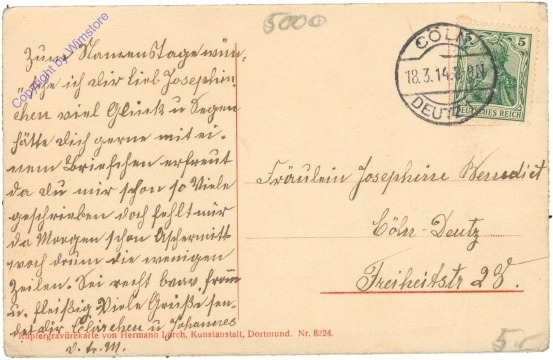 5000
Copyright by Wimstore
CÖLN
18.3.14. 8-9N
DEUTZ
5
DEUTSCHES REICH
Zum Namenstage wün-
sche ich dir lieb Josephin-
chen viel Glück u Segen
hätte dich gerne mit ei-
nem Briefchen erfreut
da du mir schon so viele
geschrieben doch fehlt mir
da Morgen schon Aschermitt
woch drum die wenigen
Zeilen. Sei recht brav fromm
u. fleißig Viele Grüße sen-
det dir Clärchen u Johannes
Fräulein Josephine Benedict
Cöln-Deutz
Freiheitstr 28.
Kupfergravürekarte von Hermann Lorch, Kunstanstalt, Dortmund. Nr. 8224.
5.-